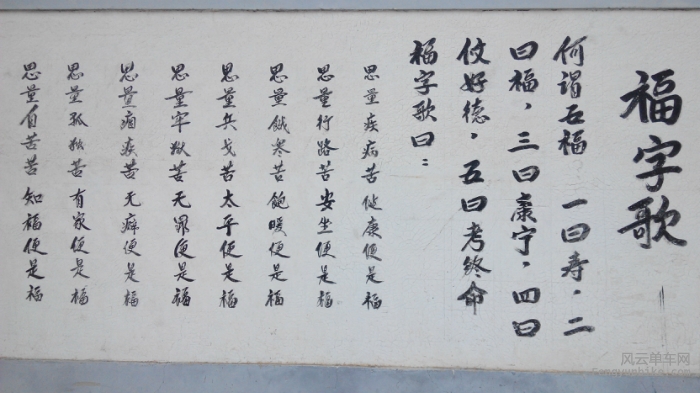 福字歌
何谓五福 一曰寿，二
曰福，三曰康宁，四曰
攸好德，五曰考终命
福字歌曰：
思量疾病苦健康便是福
思量行路苦安坐便是福
思量饿寒苦饱暖便是福
思量兵戈苦太平便是福
思量牢狱苦无罪便是福
思量痼疾苦无癖便是福
思量孤独苦有家便是福
思量自苦苦知福便是福
风云单车网